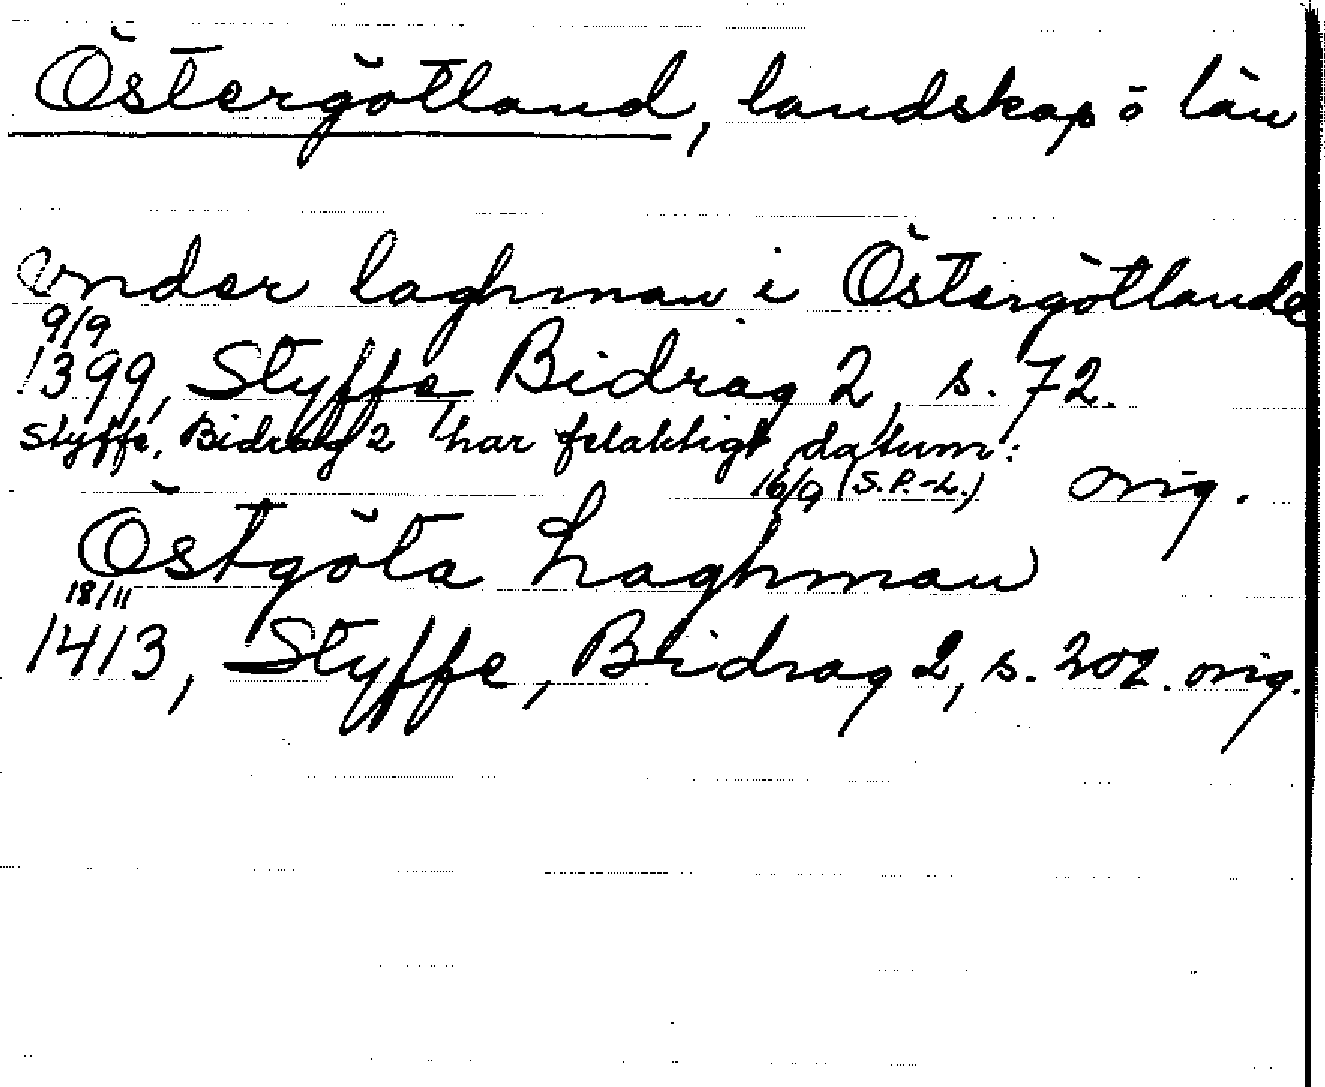 Östergötland, landskap o län
vnder laghman i Östergötlande
9/9
1399, Styffe Bidrag 2, s. 72.
Styffe, Bidrag 2 har felaktigt datum:
16/9 (S.P.-L.) orig.
Östgöta Laghman
18/11
1413, Styffe, Bidrag 2, s. 202. orig.